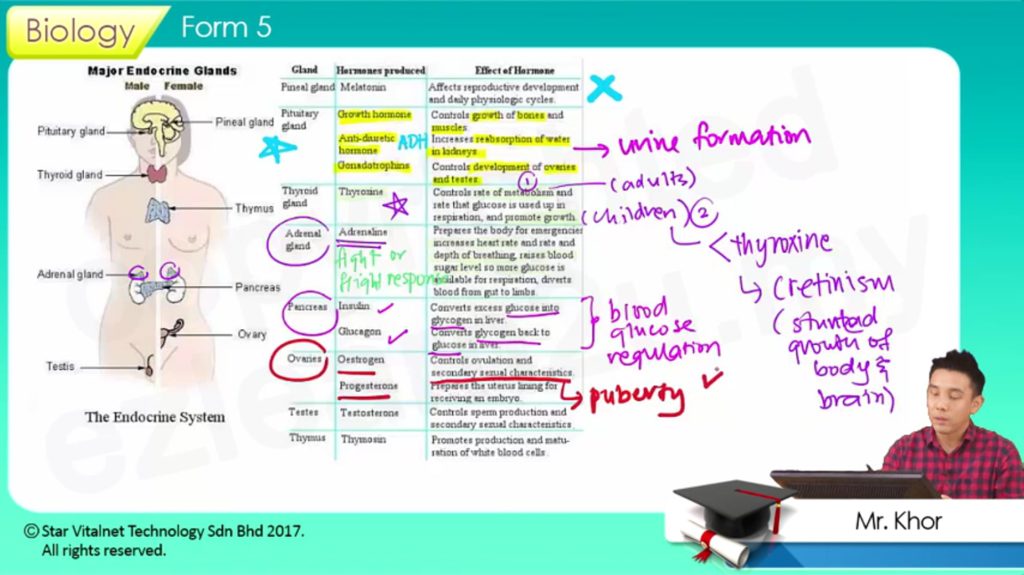 Biology
Form 5
Major Endocrine Glands
Male Female
Pituitary gland
Pineal gland
Thyroid gland
Thymus
Adrenal gland
Pancreas
Ovary
Testis
The Endocrine System
Gland Hormones produced Effect of Hormone
Pineal gland Melatonin Affects reproductive development
and daily physiologic cycles.
Pituitary gland
Growth hormone Controls growth of bones and
muscles.
Anti-diuretic hormone ADH Increases reabsorption of water
in kidneys.
Gonadotrophins Controls development of ovaries
and testes.
Thyroid gland Thyroxine Controls rate of metabolism and
rate that glucose is used up in
respiration, and promote growth.
Adrenal gland Adrenaline Prepares the body for emergencies
increases heart rate and rate and
depth of breathing, raises blood
sugar level so more glucose is
available for respiration, diverts
blood from gut to limbs.
fight or
fright response
Pancreas Insulin Converts excess glucose into
glycogen in liver.
Glucagon Converts glycogen back to
glucose in liver.
Ovaries Oestrogen Controls ovulation and
secondary sexual characteristics.
Progesterone Prepares the uterus lining for
receiving an embryo.
Testes Testosterone Controls sperm production and
secondary sexual characteristics
Thymus Thymosin Promotes production and matu-
ration of white blood cells.
urine formation
1
(adults)
(children) 2
thyroxine
cretinism
(stunted
growth of
body &
brain)
blood
glucose
regulation
puberty
© Star Vitalnet Technology Sdn Bhd 2017.
All rights reserved.
Mr. Khor